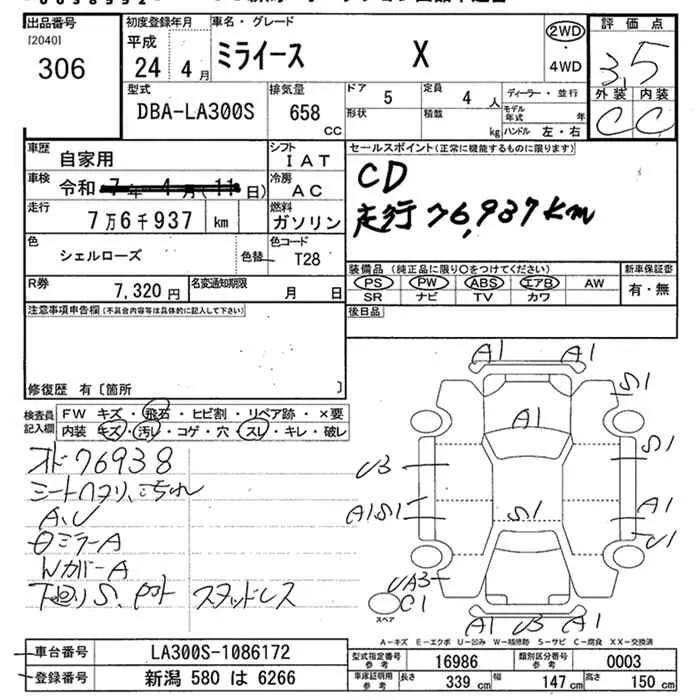 出品番号
[2040]
306
初度登録年月
平成
24 4月
車名・グレード
ミライース X
2WD
4WD
評価点
3,5
外装 内装
C C
型式
DBA-LA300S
排気量
658 CC
ドア
5
定員
4 人
形状
積数
kg
ディーラー・並行
モデル年式 年
ハンドル 左・右
車歴
自家用
シフト
IAT
車検
令和 7年 4月(11日)
冷房
AC
走行
7万6千937 km
燃料
ガソリン
色
シェルローズ
色替
色コード
T28
R券
7,320円
名変通知期限
月 日
セールスポイント(正常に機能するものに限ります)
CD
走行76,937km
装備品(純正品に限り○をつけてください)
PS PW ABS エアB AW
SR ナビ TV カワ
新車保証書
有・無
後日品
注意事項申告欄(不具合内容等は具体的に記入して下さい)
修復歴 有〔箇所 〕
検査員記入欄
FW キズ・飛石・ヒビ割・リペア跡・×要
内装 キズ・汚レ・コゲ・穴・スレ・キレ・破レ
オド76938
A、U
ミラーA
WカバーA
下廻りS、 スタッドレス
A1 A1
S1
A1
U3 S1
A1S1 S1 A1
U1
UA3
C1
スペア
A1 U3 A1
A-キズ E-エクボ U-凹み W-補修跡 S-サビ C-腐食 XX-交換済
車台番号
LA300S-1086172
登録番号
新潟 580 は 6266
型式指定番号 参考
16986
類別区分番号 参考
0003
車庫証明用 参考
長さ 339cm 幅 147cm 高さ 150cm